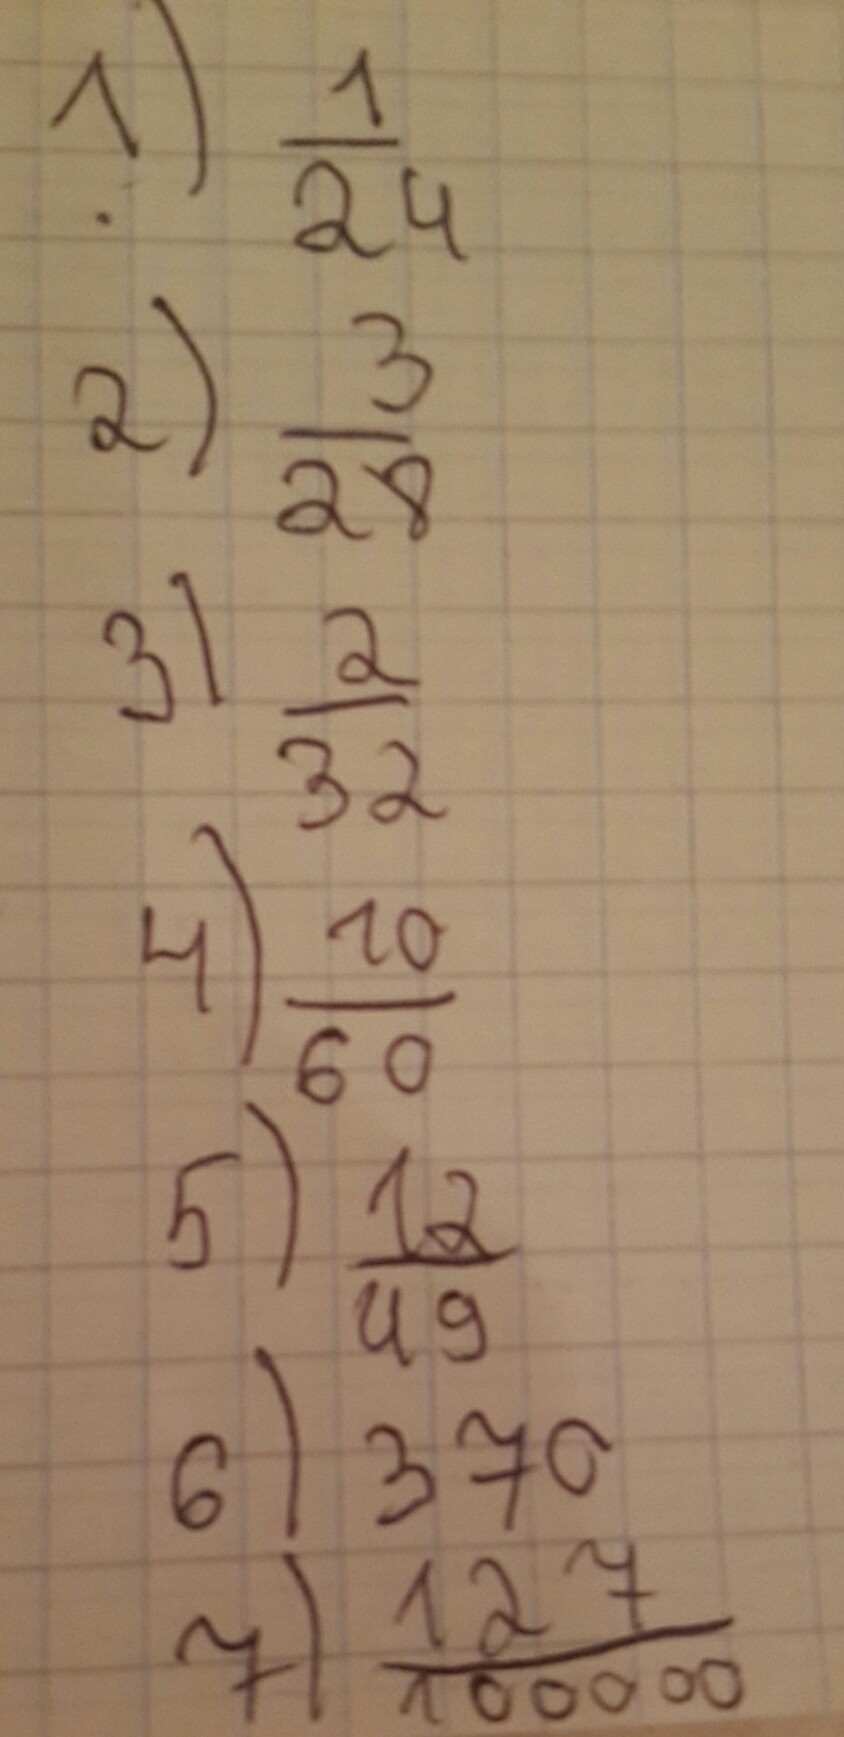 1) 1/24
2) 3/28
3) 2/32
4) 10/60
5) 12/49
6) 370
7) 127/100000